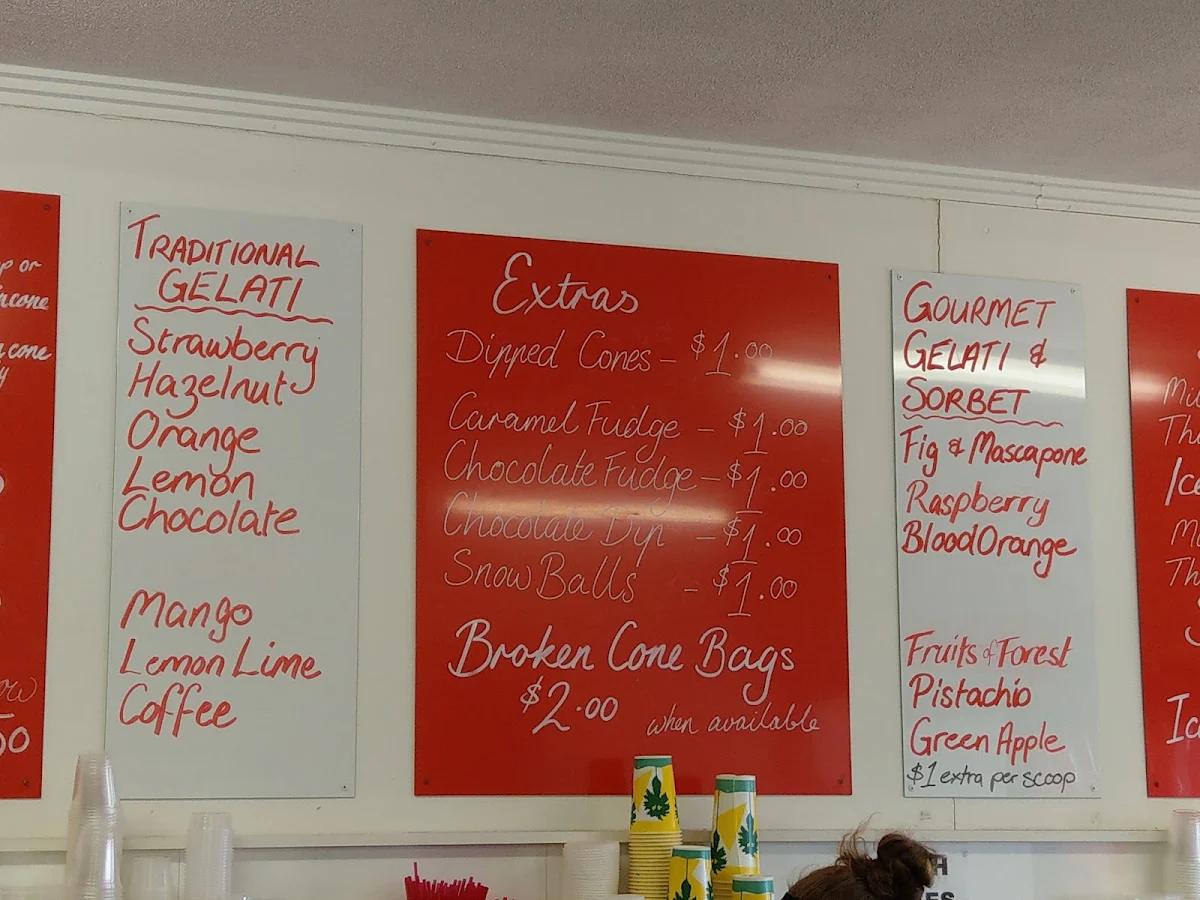 p or
cone
cone
y
ow
50
TRADITIONAL
GELATI
Strawberry
Hazelnut
Orange
Lemon
Chocolate
Mango
Lemon Lime
Coffee
Extras
Dipped Cones - $1.00
Caramel Fudge - $1.00
Chocolate Fudge - $1.00
Chocolate Dip - $1.00
Snow Balls - $1.00
Broken Cone Bags
$2.00 when available
GOURMET
GELATI &
SORBET
Fig & Mascapone
Raspberry
Blood Orange
Fruits of Forest
Pistachio
Green Apple
$1 extra per scoop
Mi
Th
Ice
M
Th
Ic
H
ES